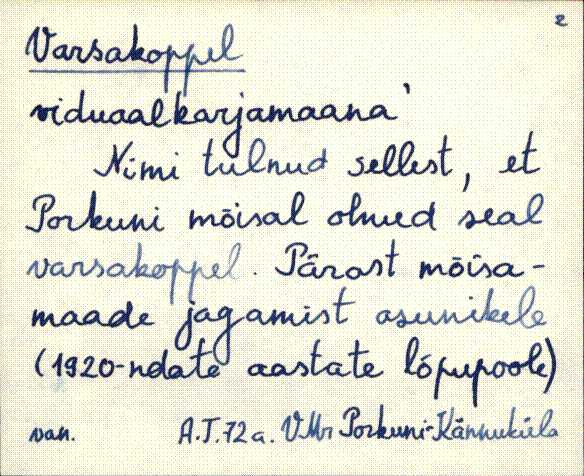 2
Varsakoppel
viduaalkarjamaana'
Nimi tulnud sellest, et
Porkuni mõisal olnud seal
varsakoppel. Pärast mõisa-
maade jagamist asunikele
(1920-ndate aastate lõpupoole)
van. A.T. 72 a. VMr Porkuni-Kännuküla